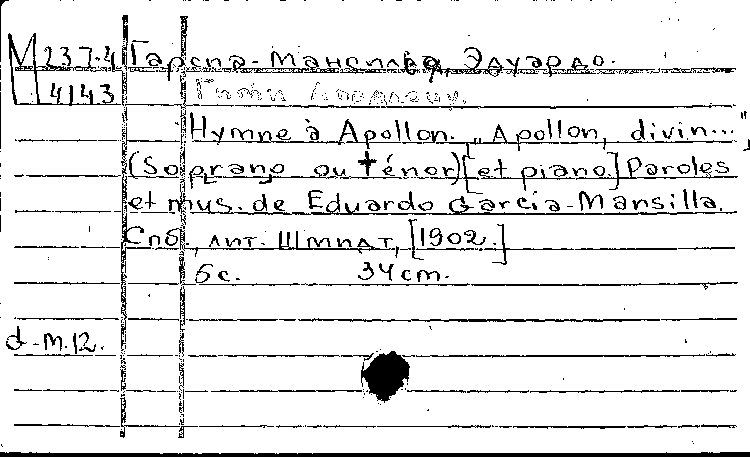 М 237.4 Гарсиа-Мансилья, Эдуардо.
4143 Гимн Аполлону.
Hymne à Apollon. „Apollon, divin..."
(Soprano ou ténor) [et piano.] Paroles
et mus. de Eduardo Garcia-Mansilla.
Спб., лит. Шмидт, [1902.]
6 с. 34 cm.
d-m.12.